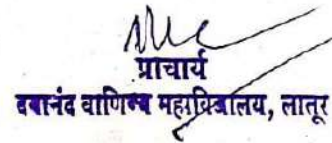 प्राचार्य
दयानंद वाणिज्य महाविद्यालय, लातूर